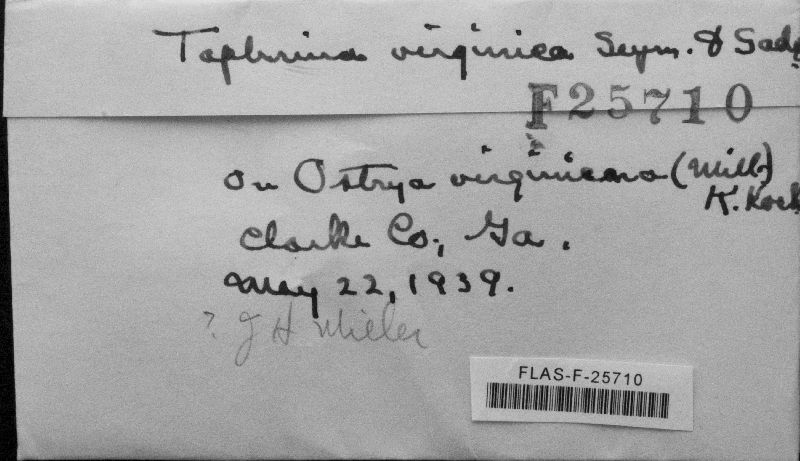 Taphrina virginica Seym. & Sade
F25710
on Ostrya virginiana (Mill.)
K. Koch
Clarke Co., Ga.
May 22, 1939.
? J H Miller
FLAS-F-25710